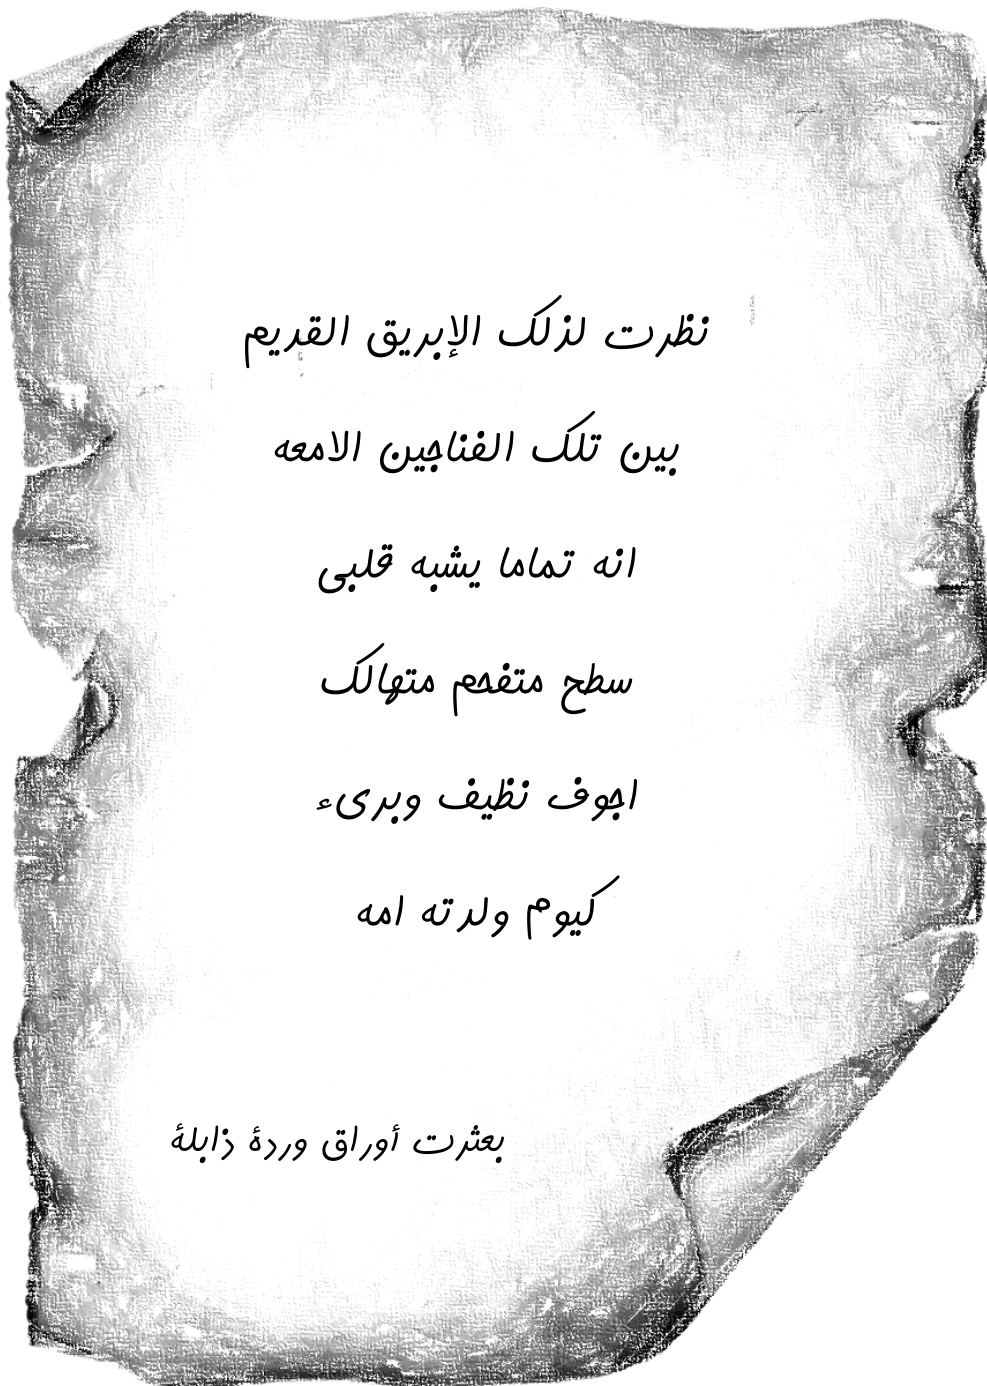 نظرت لذلك الإبريق القديم
بين تلك الفناجين الامعه
انه تماما يشبه قلبى
سطح متفحم متهالك
اجوف نظيف وبرىء
كيوم ولدته امه
بعثرت أوراق وردة ذابلة